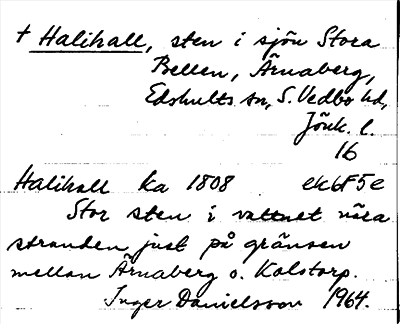 + Halihall, sten i sjön Stora
Bellen, Ärnaberg,
Edshults sn, S. Vedbo hd,
Jönk. l.
16
Halihall ka 1808 ek 6F5e
Stor sten i vattnet nära
stranden just på gränsen
mellan Ärnaberg o. Kolstorp.
Inger Danielsson 1964.